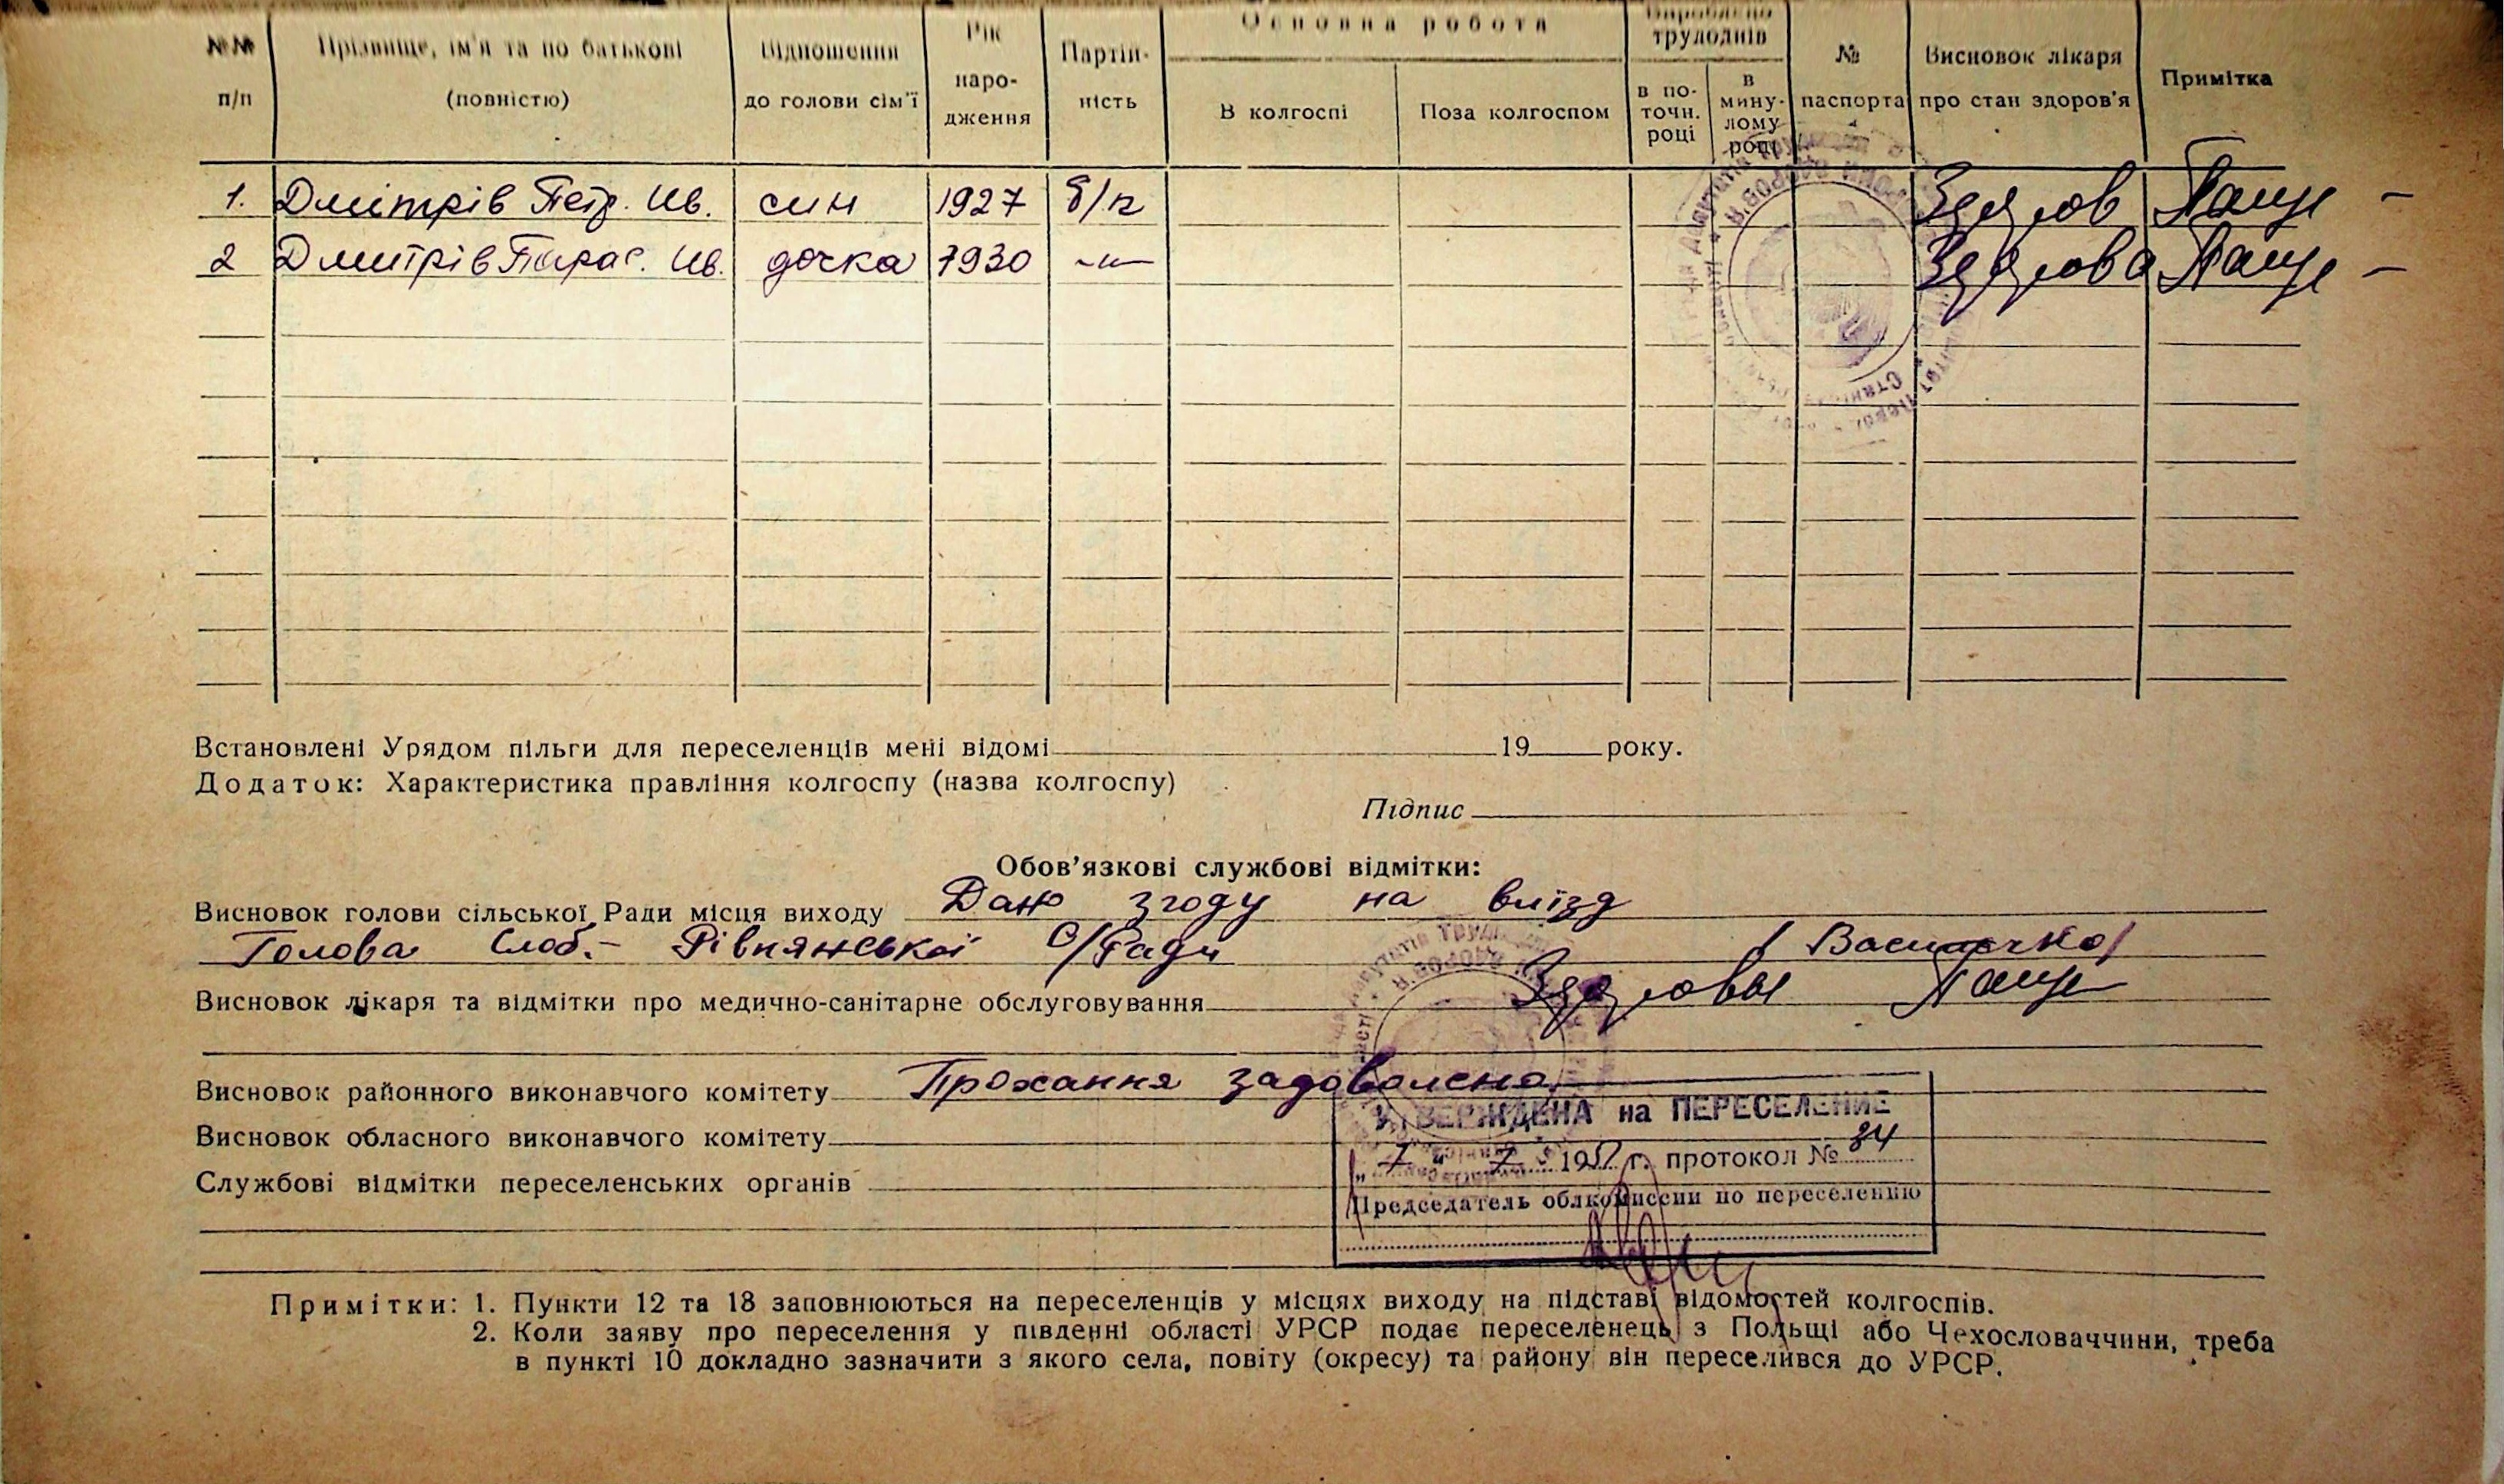 №№ п/п
Прізвище, ім'я та по батькові (повністю)
Відношення до голови сім'ї
Рік народження
Партійність
Основна робота
В колгоспі
Поза колгоспом
Вироблено трудоднів
в поточн. році
в минулому році
№ паспорта
Висновок лікаря про стан здоров'я
Примітка
1. Дмітрів Петр. Ив. син 1927 б/п Здоров
2 Дмитрів Парас. Ив. дочка 1930 –"– Здорова
Встановлені Урядом пільги для переселенців мені відомі 19 року.
Додаток: Характеристика правління колгоспу (назва колгоспу)
Підпис
Обов'язкові службові відмітки:
Висновок голови сільської Ради місця виходу Даю згоду на виїзд
Голова Слоб.- Рівнянської с/Ради
Висновок лікаря та відмітки про медично-санітарне обслуговування Здоровы
Висновок районного виконавчого комітету Прохання задоволено.
Висновок обласного виконавчого комітету
Службові відмітки переселенських органів
УТВЕРЖДЕНА на ПЕРЕСЕЛЕНИЕ
„7" 7 1951 г. протокол № 34
Председатель облкомиссии по переселению
Примітки: 1. Пункти 12 та 18 заповнюються на переселенців у місцях виходу на підставі відомостей колгоспів.
2. Коли заяву про переселення у південні області УРСР подає переселенець з Польщі або Чехословаччини, треба
в пункті 10 докладно зазначити з якого села, повіту (окресу) та району він переселився до УРСР.